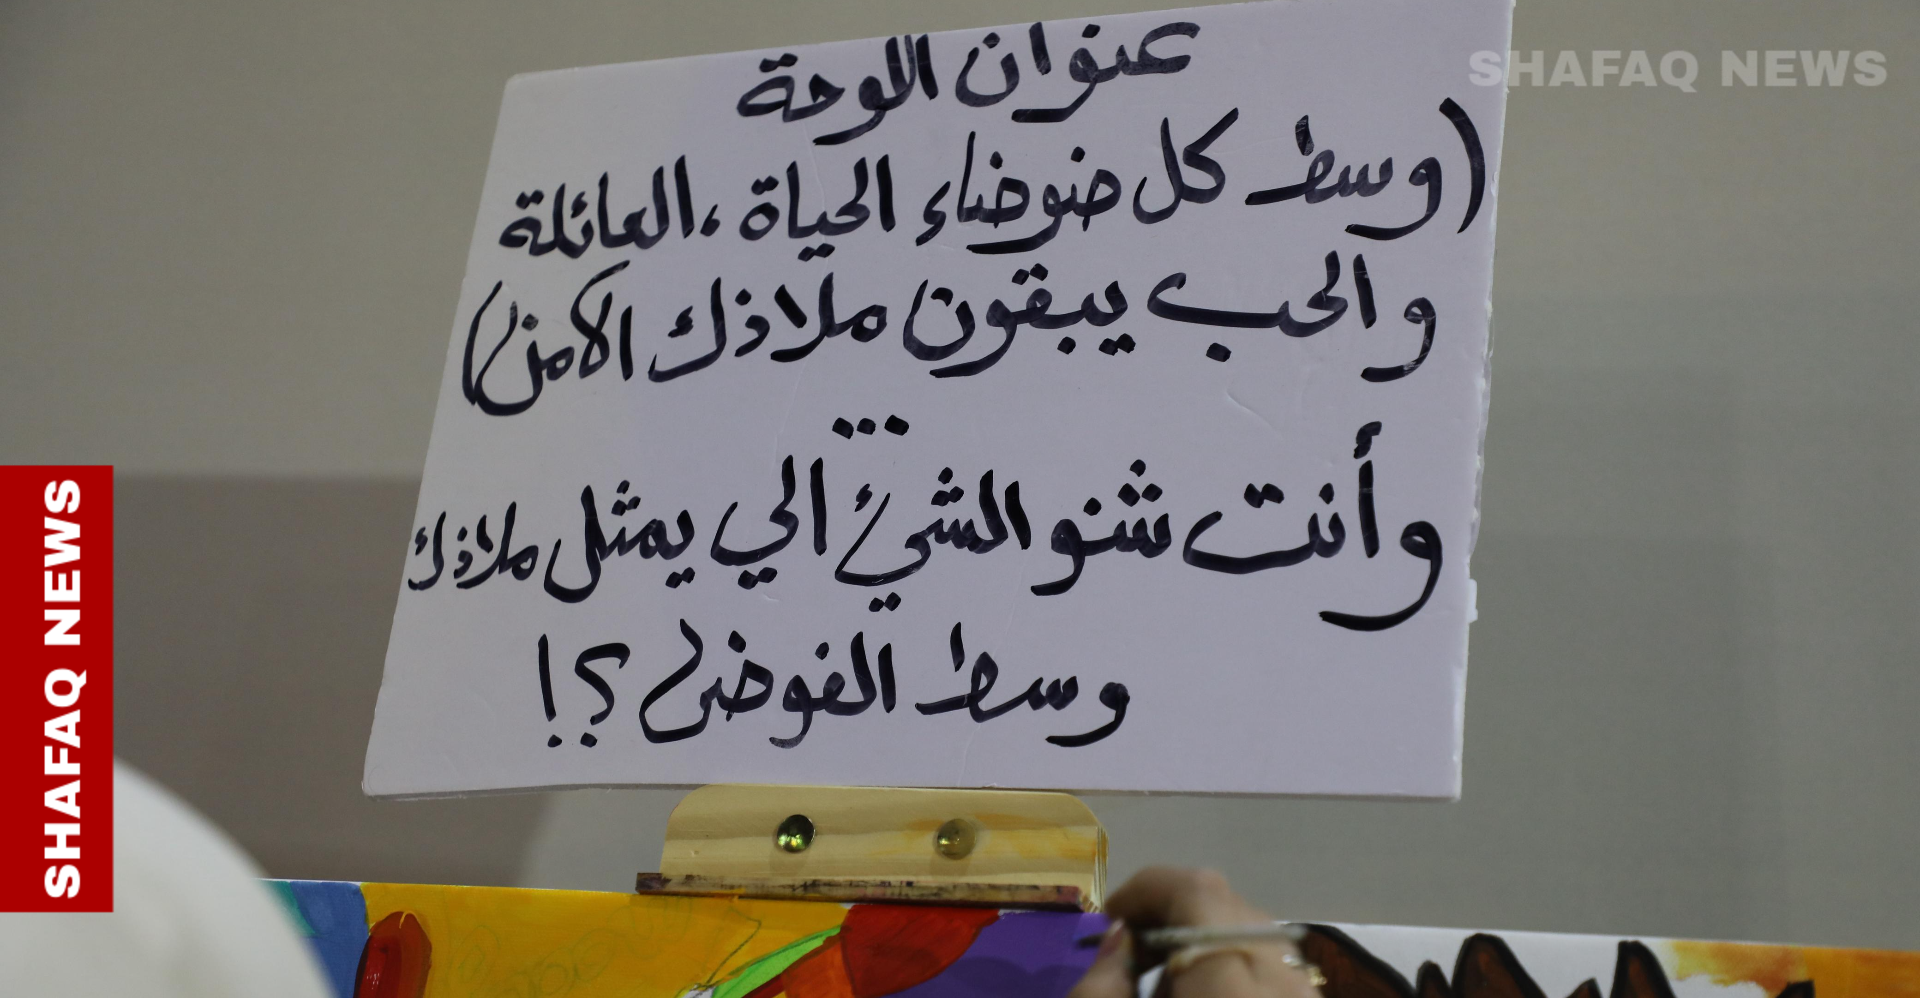 عنوان اللوحة
(وسط كل ضوضاء الحياة ،العائلة
والحب يبقون ملاذك الآمن)
...
وأنت شنو الشيئ الي يمثل ملاذك
وسط الفوضى؟!
SHAFAQ NEWS
SHAFAQ NEWS